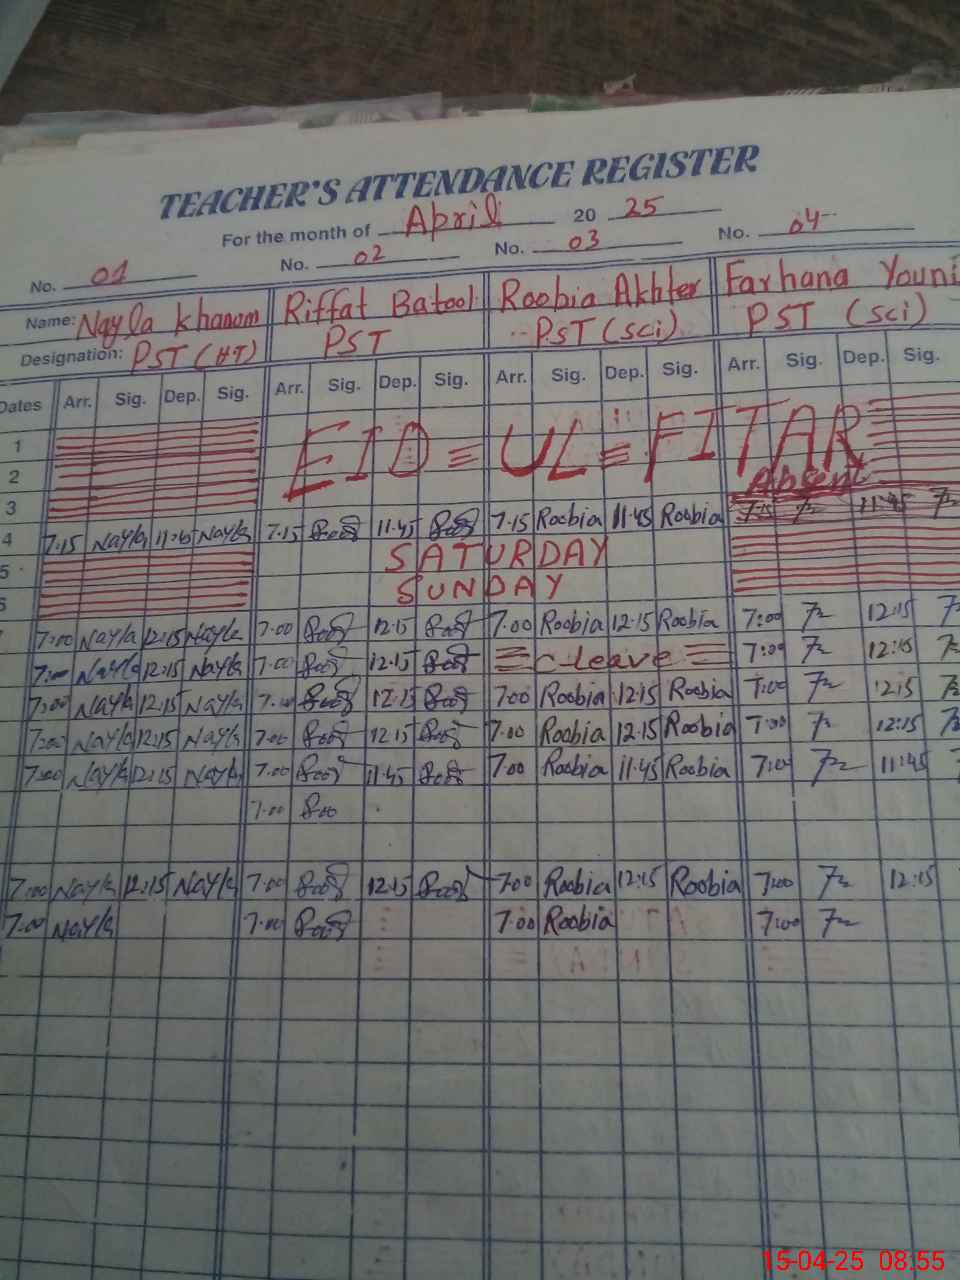 TEACHER'S ATTENDANCE REGISTER
For the month of April 20 25
No. 01 No. 02 No. 03 No. 04
Name: Nayla Khanom Riffat Batool Roobia Akhter Farhana Youni
Designation: PST (HT) PST PST (sci) PST (sci)
Dates Arr. Sig. Dep. Sig. Arr. Sig. Dep. Sig. Arr. Sig. Dep. Sig. Arr. Sig. Dep. Sig.
1 EID = UL = FITAR
2
Absent
3
4 7.15 Nayla 11:45 Nayla 7.15 11.45 7.15 Roobia 11.45 Roobia 7:15 11:45
5 SATURDAY
6 SUNDAY
7:00 Nayla 12:15 Nayla 7.00 12.15 7.00 Roobia 12.15 Roobia 7:00 12:15
7:00 Nayla 12:15 Nayla 7.00 12.15 C-leave 7:00 12:15
7:00 Nayla 12:15 Nayla 7.00 12.15 7:00 Roobia 12.15 Roobia 7:00 12:15
7:00 Nayla 12:15 Nayla 7.00 12.15 7.00 Roobia 12.15 Roobia 7:00 12:15
7:00 Nayla 12:15 Nayla 7.00 11.45 7.00 Roobia 11.45 Roobia 7:00 11:45
7.00
7:00 Nayla 12:15 Nayla 7.00 12.15 7:00 Roobia 12:15 Roobia 7:00 12:15
7.00 Nayla 7.00 7.00 Roobia 7:00
15-04-25 08:55